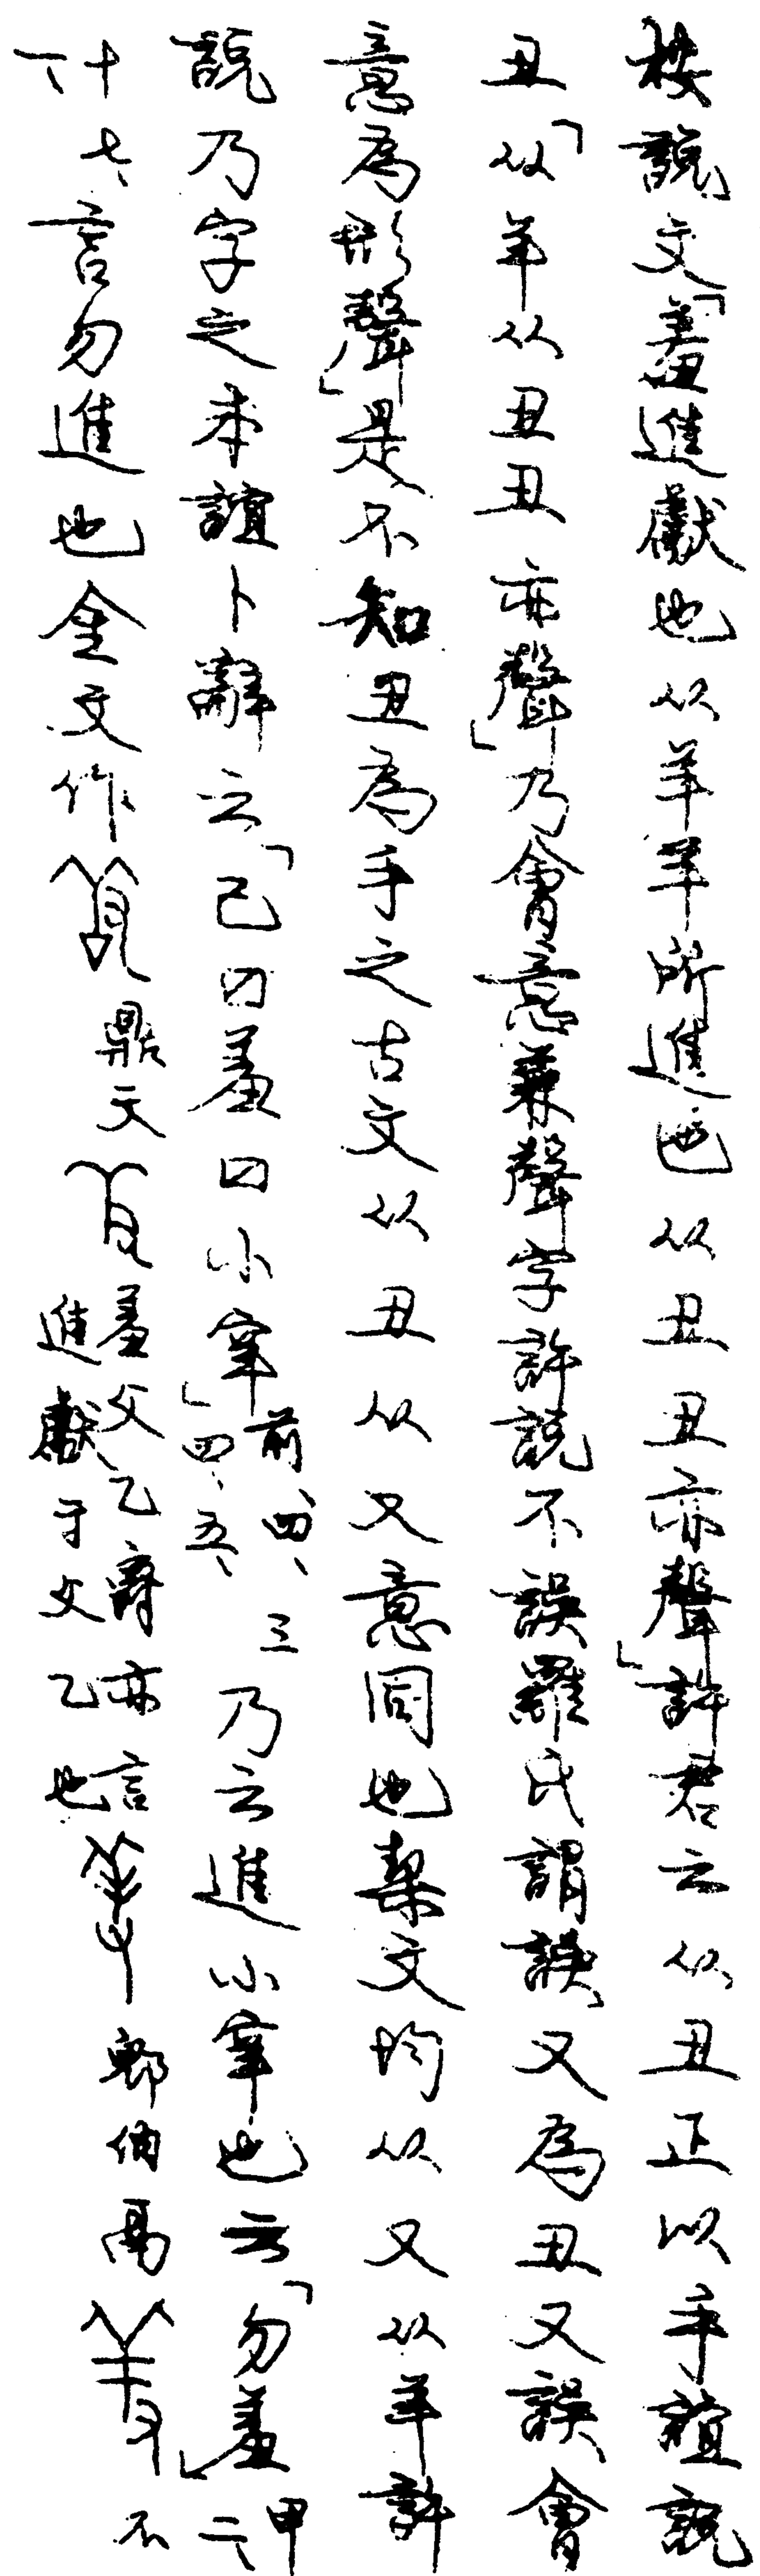 按說文「羞進獻也从羊羊所進也从丑丑亦聲」許君云从丑正以手誼說
丑「从羊从丑丑亦聲」乃會意兼聲字許說不誤羅氏謂誤又為丑又誤會
意為形聲」是不知丑為手之古文从丑从又意同也栔文均从又从羊許
說乃字之本誼卜辭云「己囗羞囗小宰」前、四、三四、五、乃云進小宰也云「勿羞」甲二、
一、十七、言勿進也金文作鼎文羞父乙爵亦言進獻于父乙也伯鬲不